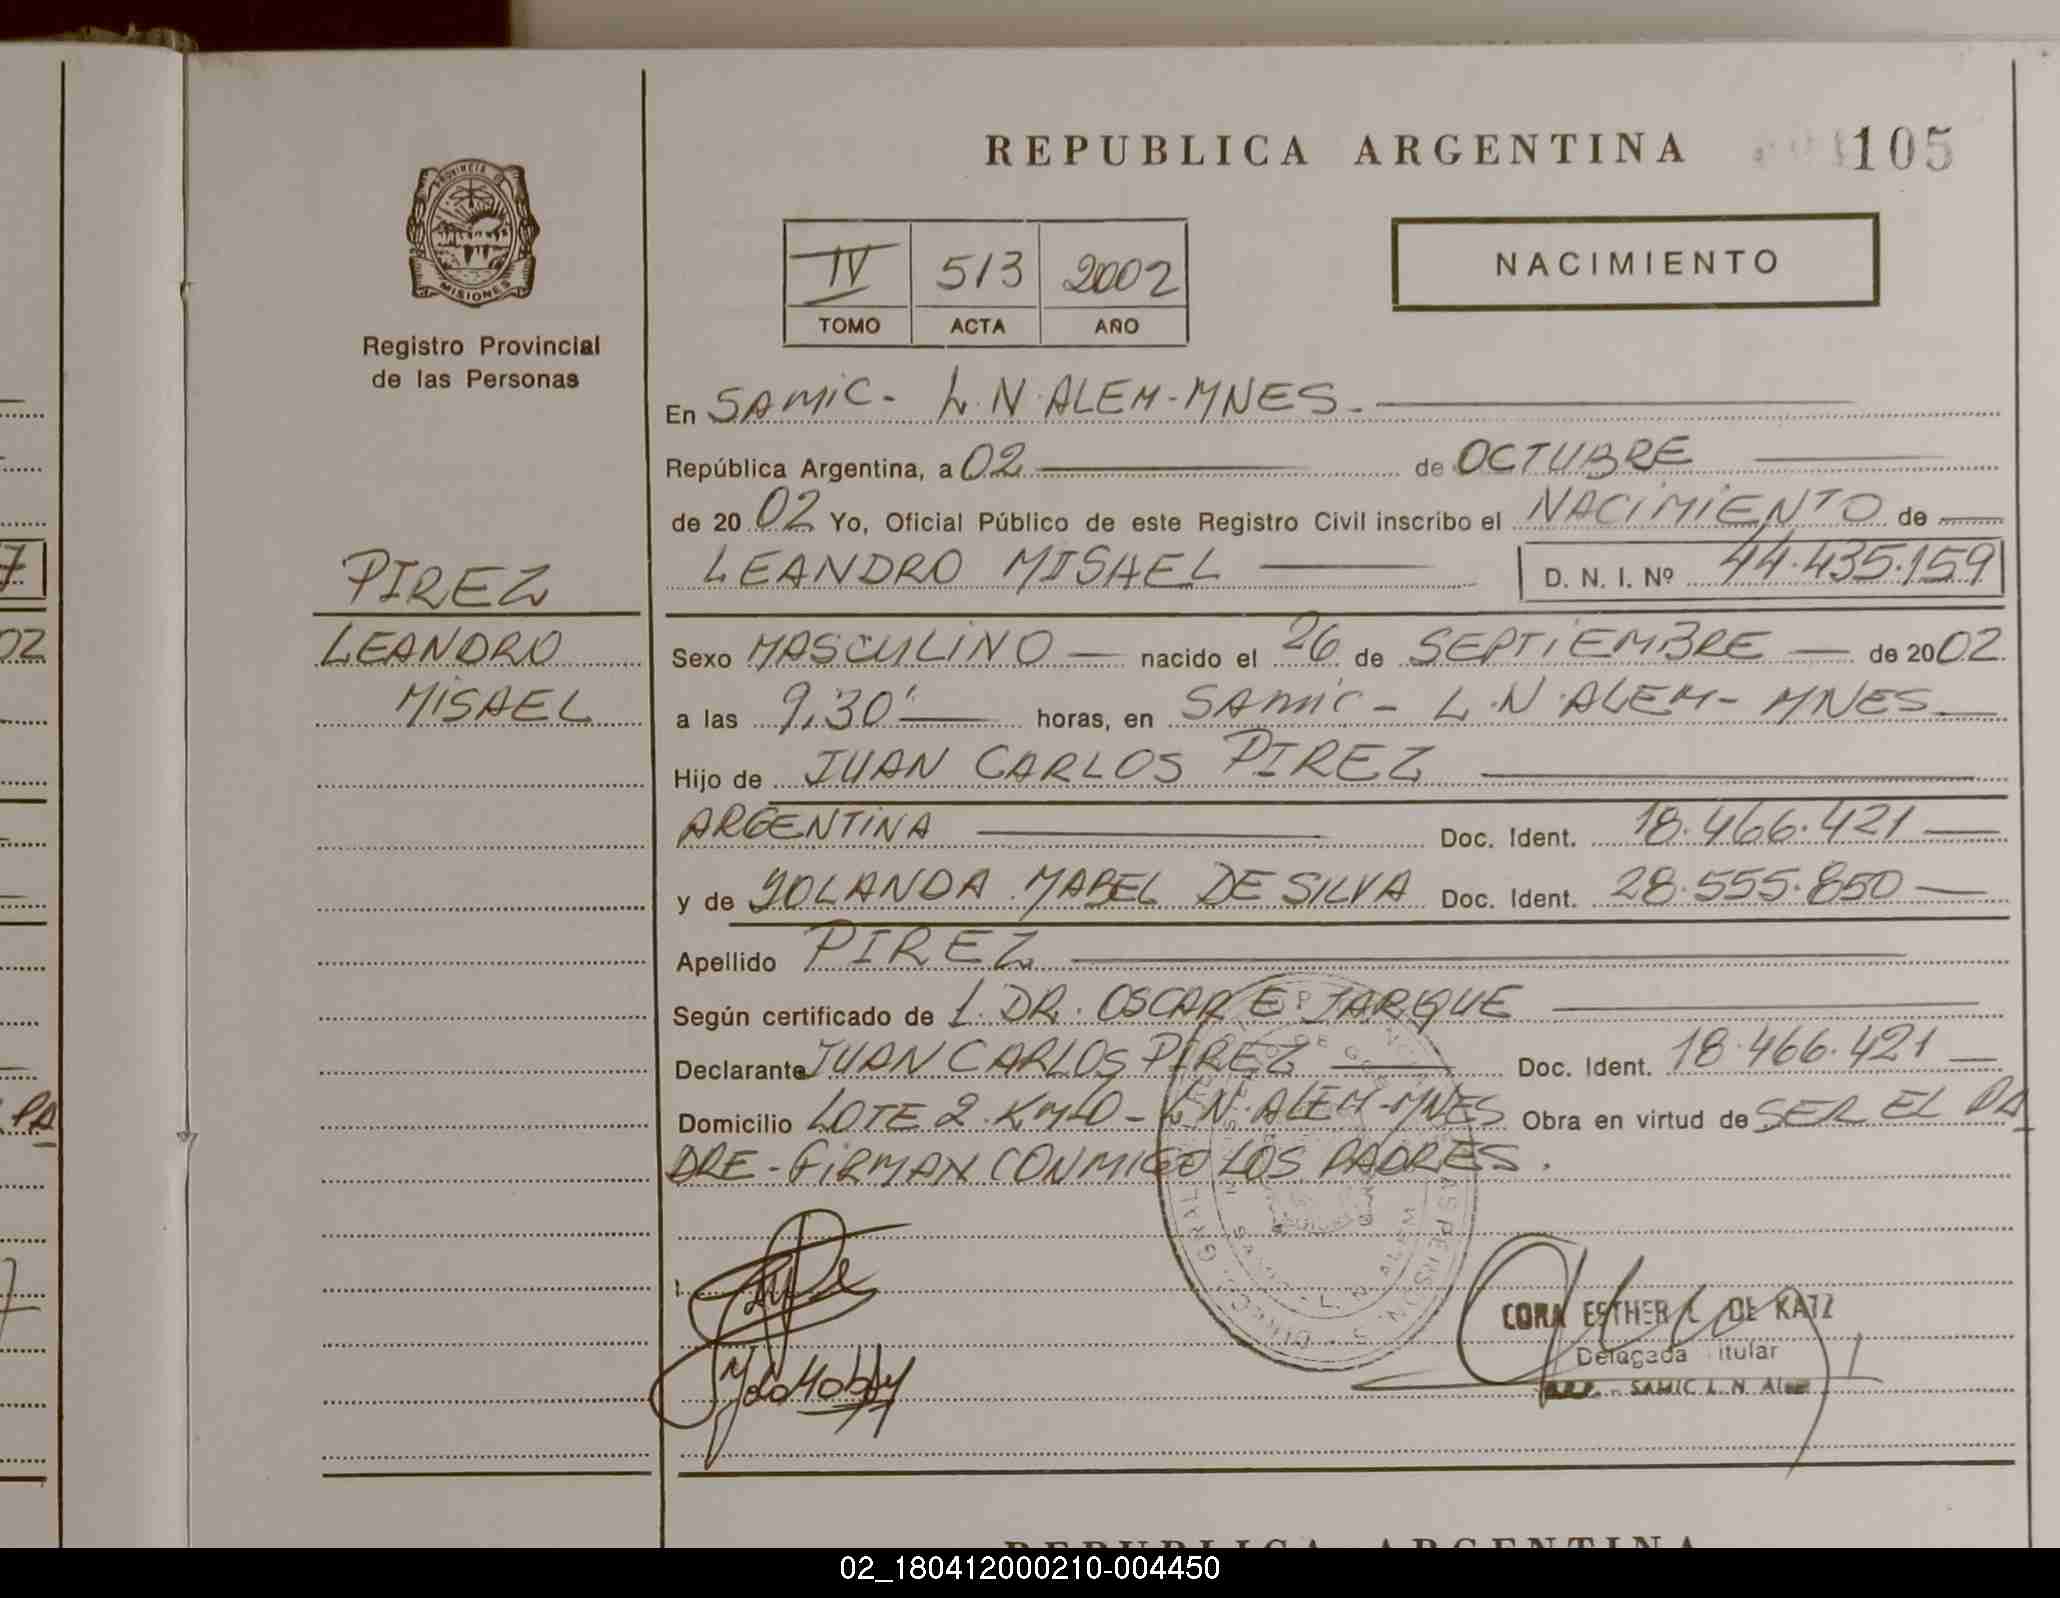 REPUBLICA ARGENTINA
105
PROVINCIA DE
MISIONES
Registro Provincial
de las Personas
IV 513 2002
TOMO ACTA AÑO
NACIMIENTO
En SAMIC - L.N.ALEM-MNES-
República Argentina, a 02 de OCTUBRE
de 2002 Yo, Oficial Público de este Registro Civil inscribo el NACIMIENTO de
LEANDRO MISAEL D. N. I. Nº 44.435.159
PIREZ
LEANDRO
MISAEL
Sexo MASCULINO nacido el 26 de SEPTIEMBRE de 2002
a las 9,30' horas, en SAMIC - L.N.ALEM- MNES
Hijo de JUAN CARLOS PIREZ
ARGENTINA Doc. Ident. 18.466.421
y de YOLANDA MABEL DE SILVA Doc. Ident. 28.555.850
Apellido PIREZ
Según certificado de L. DR. OSCAR E. JARQUE
Declarante JUAN CARLOS PIREZ Doc. Ident. 18.466.421
Domicilio LOTE 2 KM 0 - L.N.ALEM-MNES Obra en virtud de SER EL PA
DRE - FIRMAN CONMIGO LOS PADRES.
CORA ESTHER L DE KATZ
Delegada Titular
SAMIC L. N. Alem
REPUBLICA ARGENTINA
02_180412000210-004450